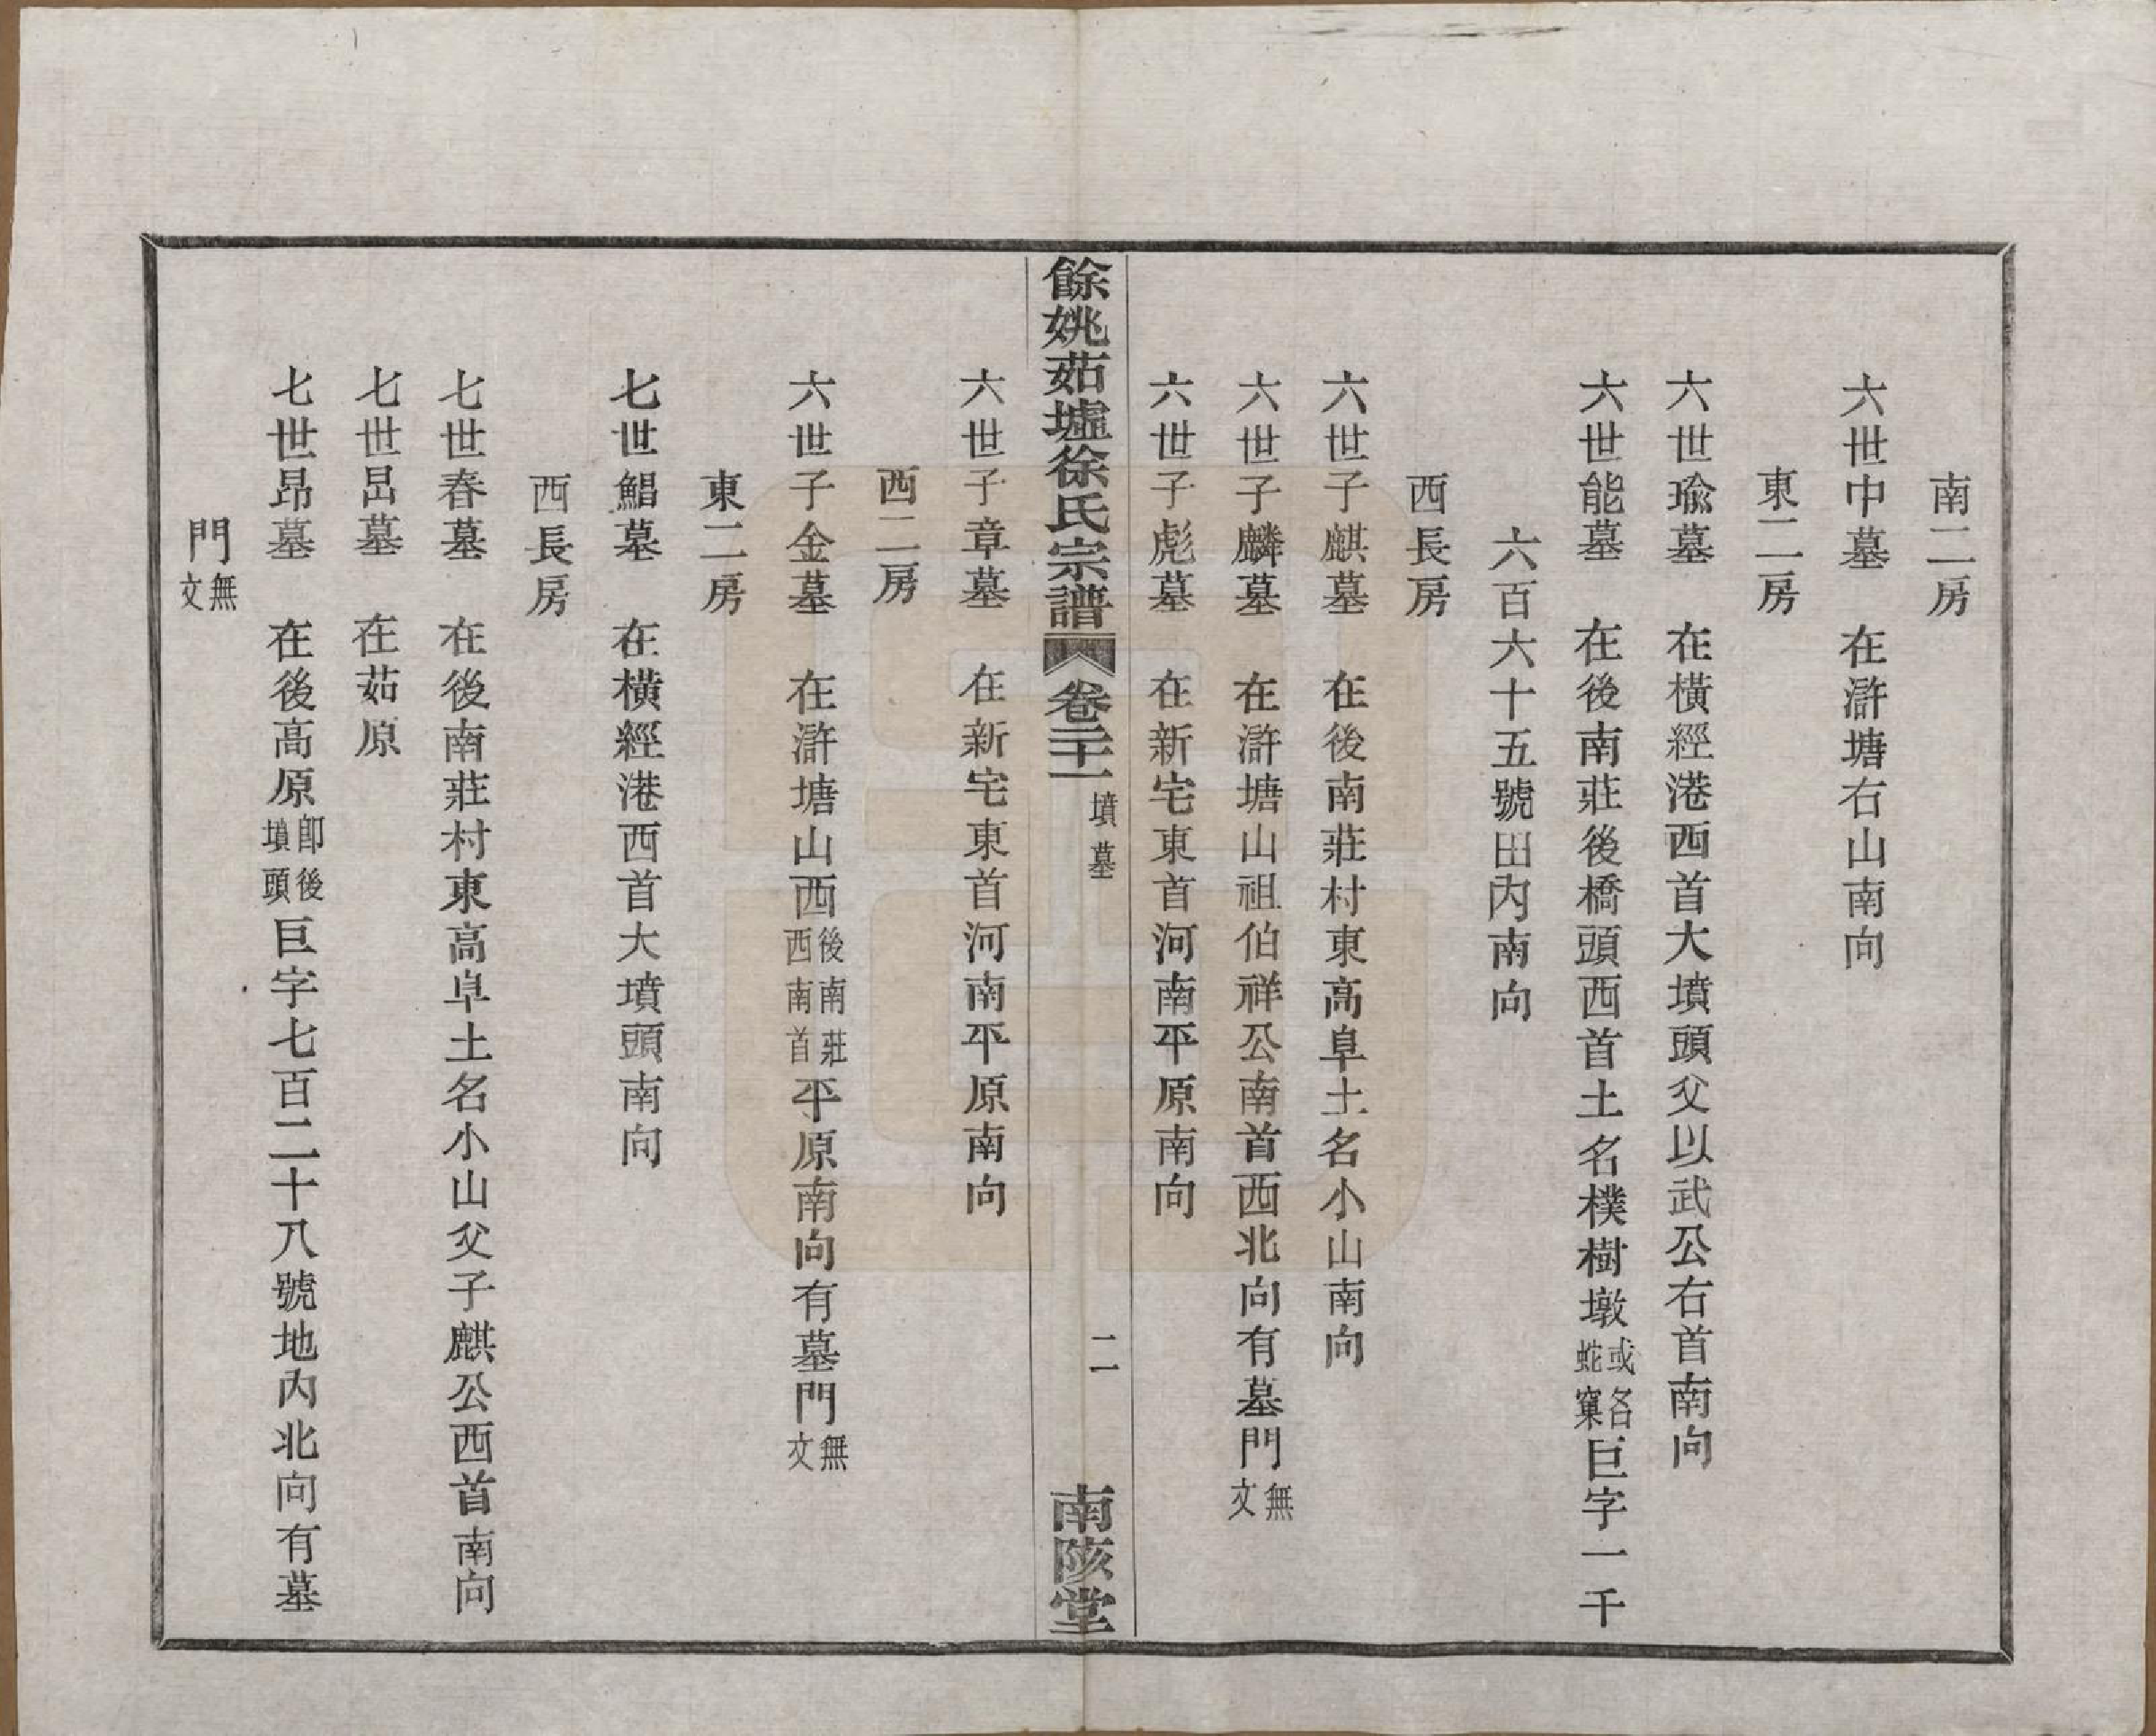 南二房
六世中墓　在滸塘右山南向
東二房
六世瑜墓　在橫經港西首大墳頭父以武公右首南向
六世能墓　在後南莊後橋頭西首土名樸樹墩或名蛇窠巨字一千
六百六十五號田內南向
西長房
六世子麒墓　在後南莊村東高阜土名小山南向
六世子麟墓　在滸塘山祖伯祥公南首西北向有墓門無文
六世子彪墓　在新宅東首河南平原南向
餘姚茹墟徐氏宗譜　卷二十一　墳墓　二　南陔堂
六世子章墓　在新宅東首河南平原南向
西二房
六世子金墓　在滸塘山西後南莊西南首平原南向有墓門無文
東二房
七世鯧墓　在橫經港西首大墳頭南向
西長房
七世春墓　在後南莊村東高阜土名小山父子麒公西首南向
七世昌墓　在茹原
七世昂墓　在後高原卽後墳頭巨字七百二十八號地內北向有墓
門無文